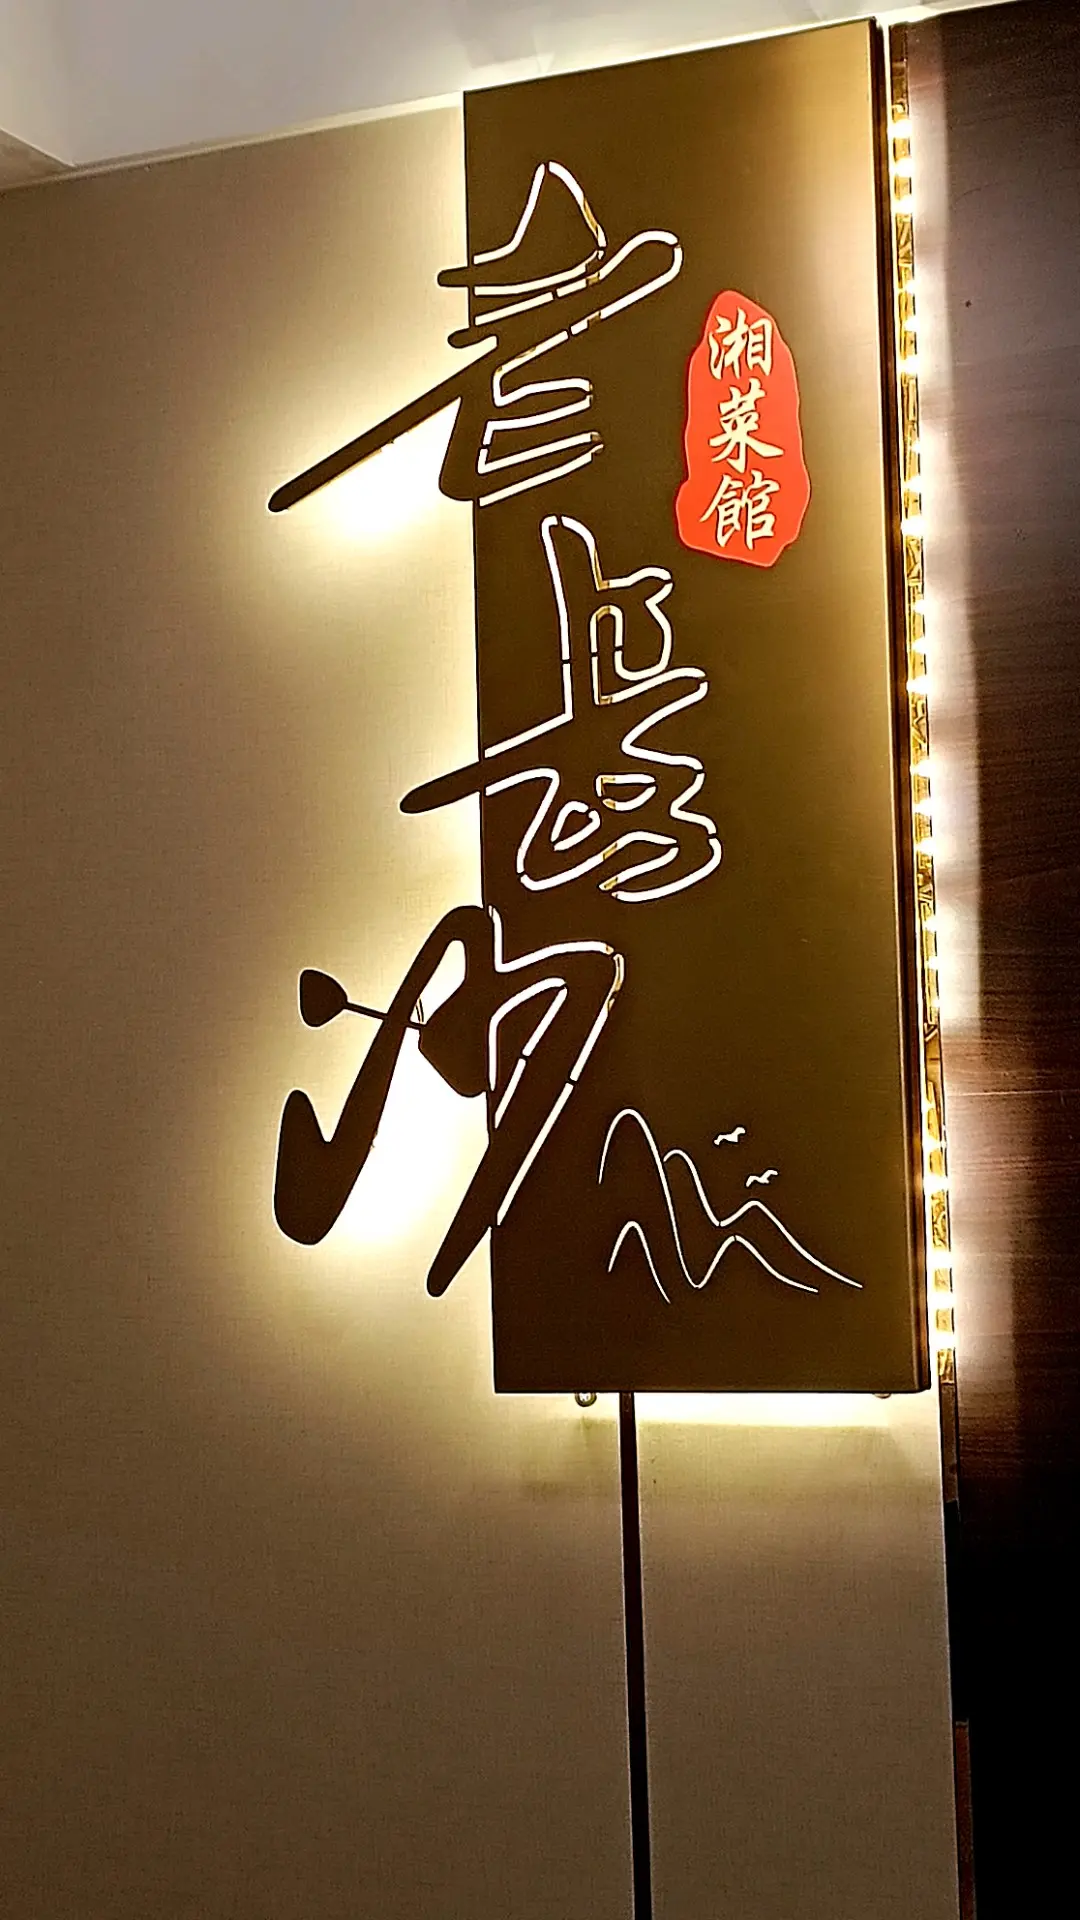 老長沙
湘菜館